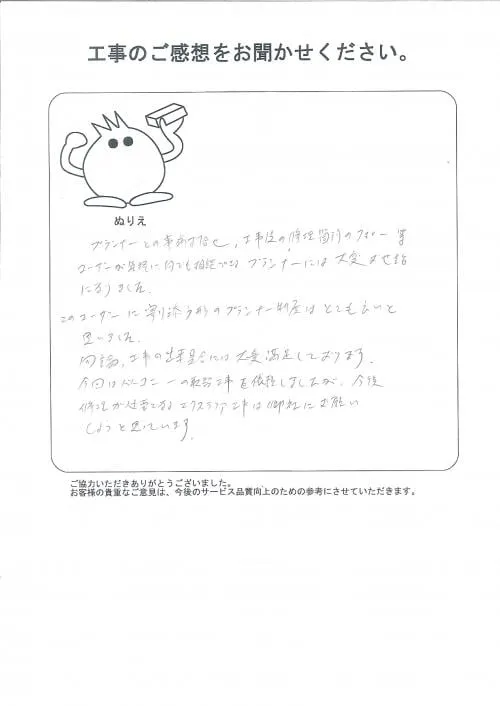 工事のご感想をお聞かせください。
ぬりえ
プランナーとの事前打合せ、工事後の修理箇所のフォロー等
ユーザーが気軽に何でも相談できるプランナーには大変お世話
になりました。
このユーザーに寄り添う形のプランナー制度はとても良いと
思いました。
勿論、工事の出来具合には大変満足しております。
今回はバルコニーの取替工事を依頼しましたが、今後
修理が必要となるエクステリア工事は御社にお願い
しようと思っています。
ご協力いただきありがとうございました。
お客様の貴重なご意見は、今後のサービス品質向上のための参考にさせていただきます。